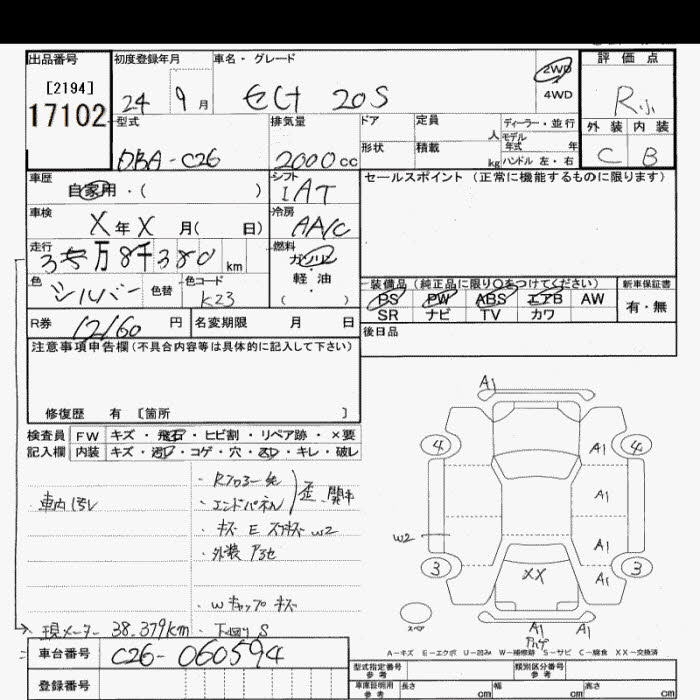 出品番号
[2194]
17102
初度登録年月
24 9月
車名・グレード
セレナ 20S
2WD
4WD
評価点
R小
外装 内装
C B
型式
DBA-C26
排気量
2000cc
ドア
定員
人
ディーラー・並行
モデル
年式 年
形状
積載
kg
ハンドル 左・右
車歴
自家用・( )
シフト
IAT
セールスポイント(正常に機能するものに限ります)
車検
X年X月( 日)
冷房
AA/C
走行
3万8千380km
燃料
ガソリン
軽・油
( )
色
シルバー
色替
色コード
K23
装備品(純正品に限り○をつけてください)
新車保証書
PS PW ABS エアB AW
有・無
SR ナビ TV カワ
R券
12160円
名変期限 月 日
後日品
注意事項申告欄(不具合内容等は具体的に記入して下さい)
修復歴 有 [箇所 ]
検査員
記入欄
FW キズ・飛石・ヒビ割・リペア跡・×要
内装 キズ・汚レ・コゲ・穴・スレ・キレ・破レ
車内汚レ
・エンドパネル
・キズ E スリキズ W2
・Wキャップキズ
現メーター 38.379km
・下廻りS
車台番号
C26-060594
登録番号
A1
4 4
A1
A1
W2
A1
3 3
A1
XX
A1 A1
A-キズ E-エクボ U-凹み W-補修跡 S-サビ C-腐食 XX-交換済
型式指定番号
参考
類別区分番号
参考
車庫証明用
参考
長さ cm
幅 cm
高さ cm